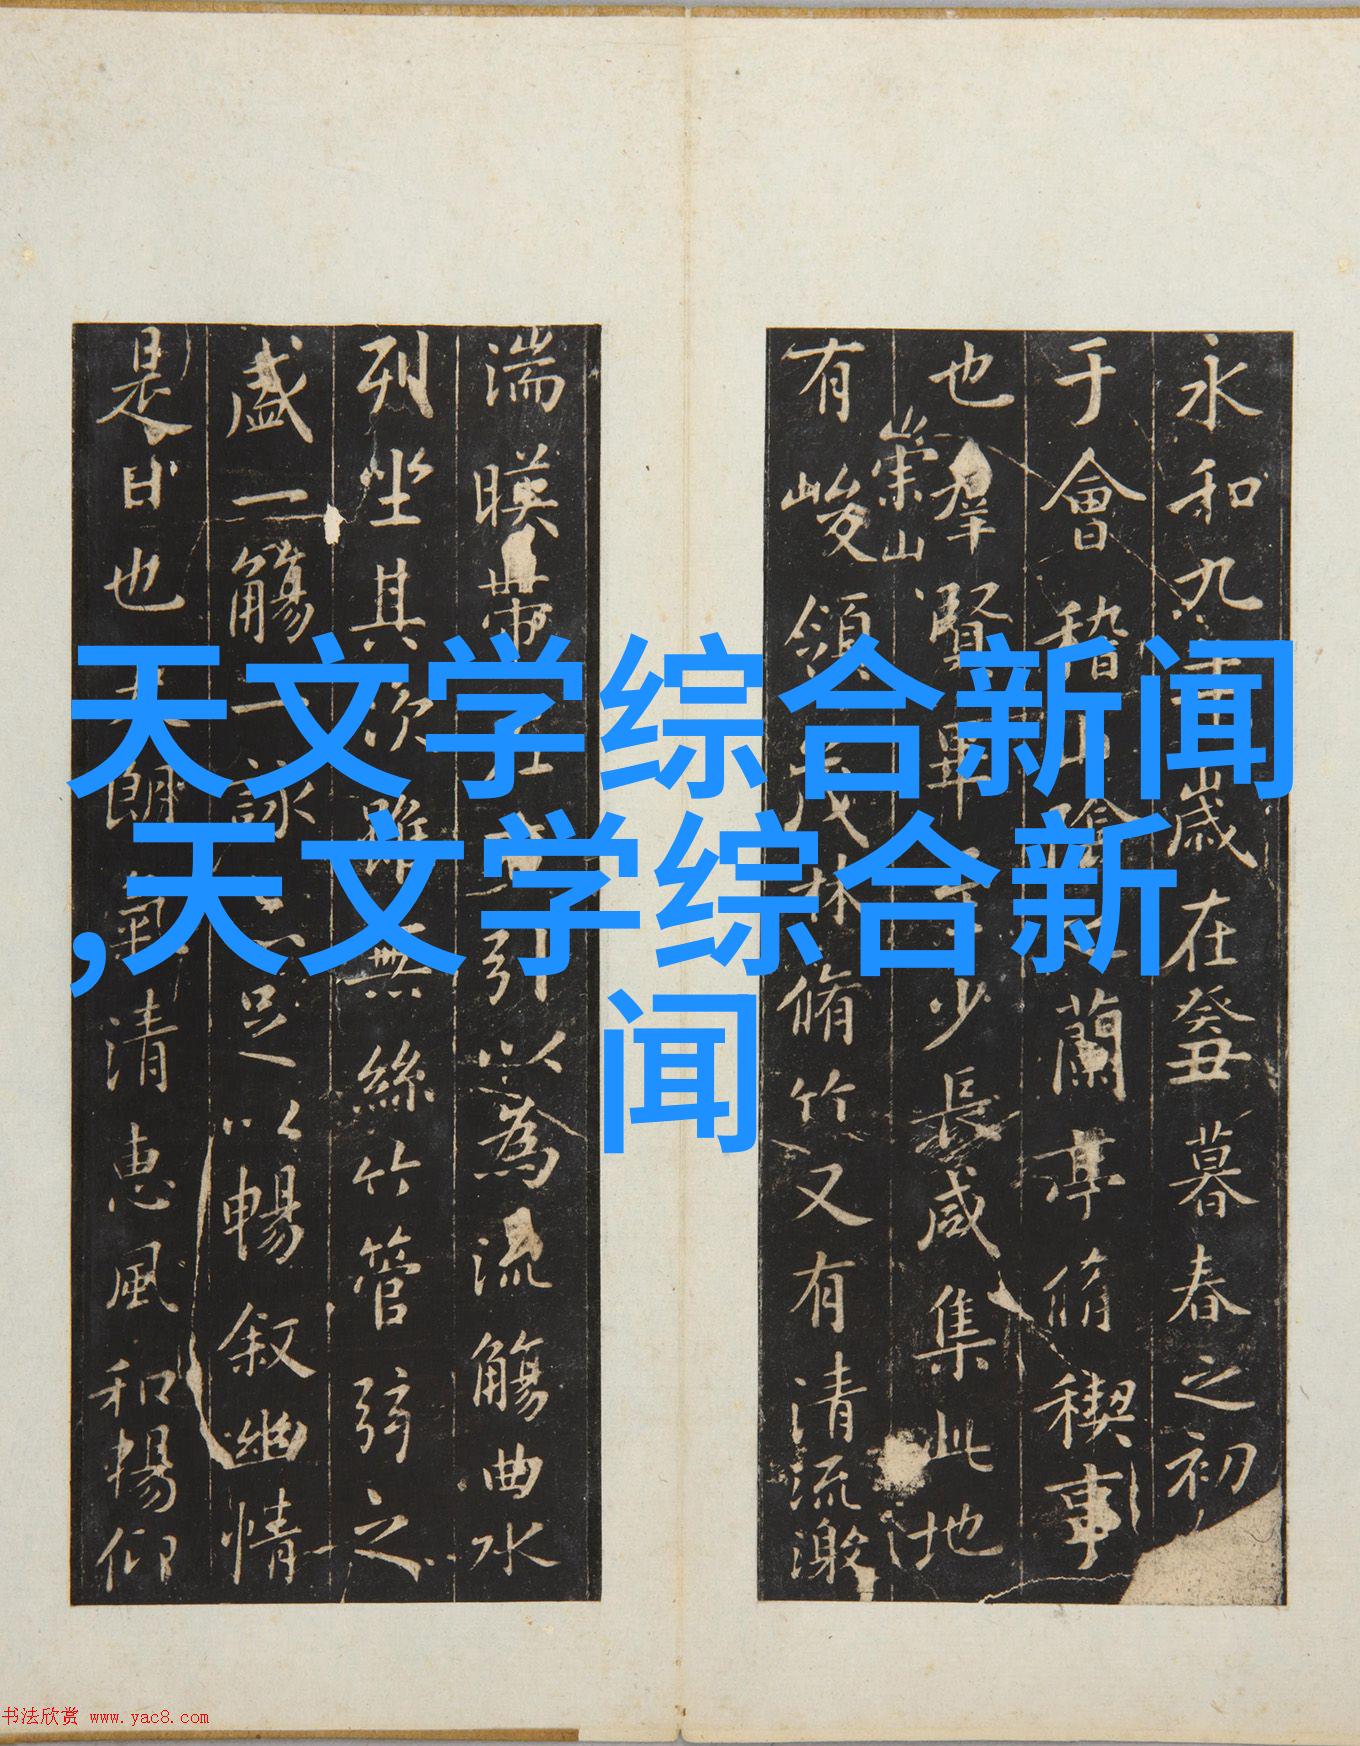 天文学综合新闻
,天文学综合新
闻
永和九年歲在癸丑暮春之初
于會稽山陰之蘭亭脩禊事
也羣賢畢至少長咸集此地
崇山
有峻領茂林脩竹又有清流激
湍暎帶左右引以為流觴曲水
列坐其次雖無絲竹管弦之
盛一觴一詠亦足以暢叙幽情
是日也天朗氣清惠風和暢仰
书法欣赏 www.yac8.com